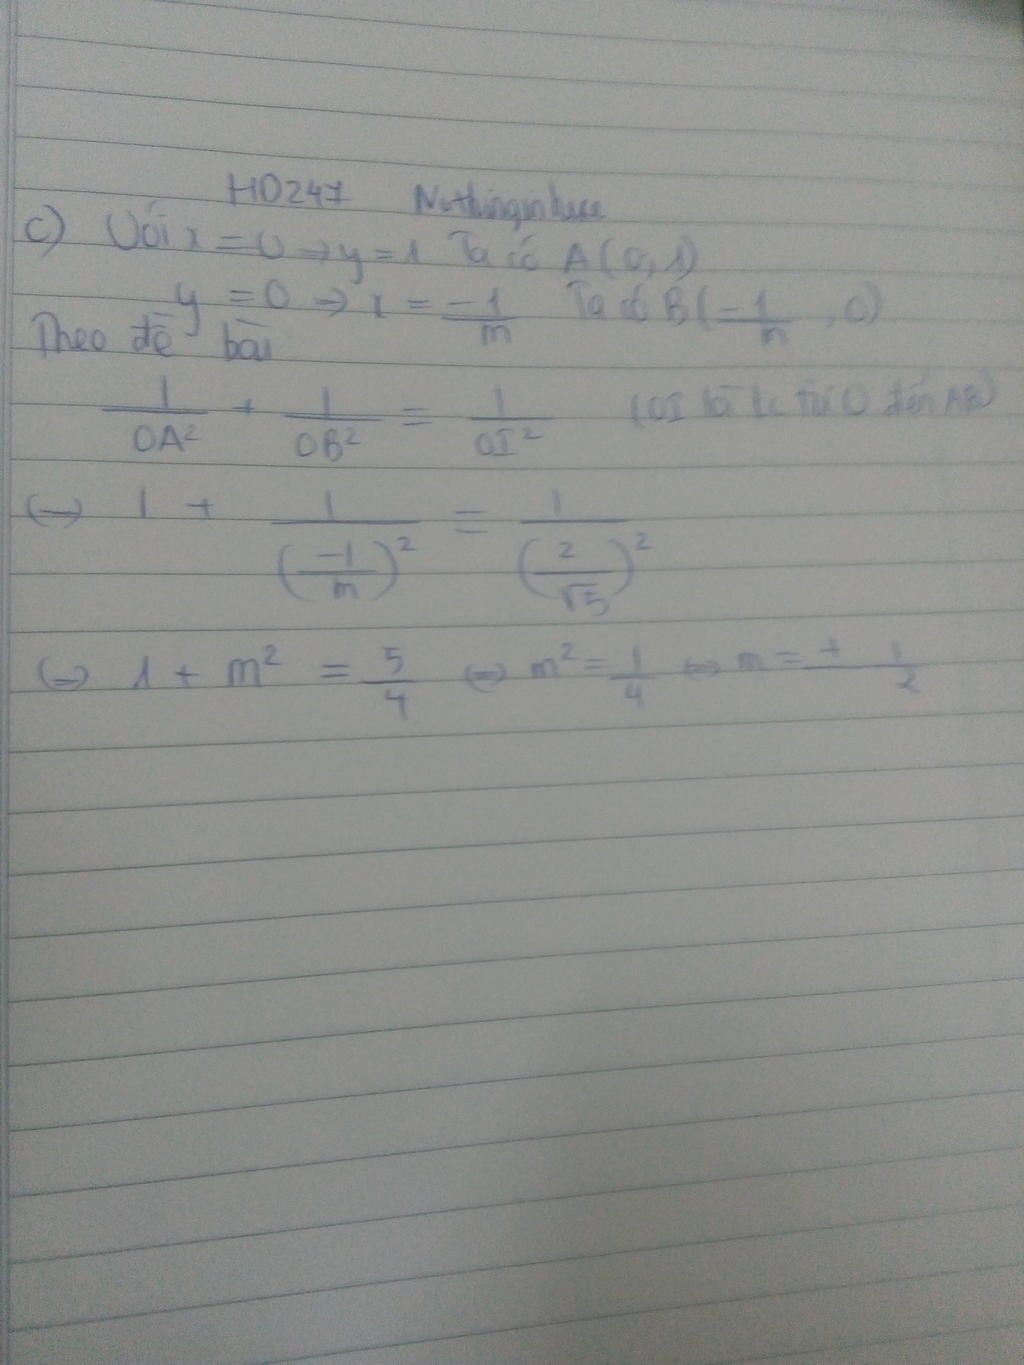 HD247 Nothinginhere
c) Với x = 0 => y = 1 Ta có A(0,1)
y = 0 => x = -1/m Ta có B(-1/m, 0)
Theo đề bài
1/OA² + 1/OB² = 1/OI² (OI là k/c từ O đến AB)
<=> 1 + 1/(-1/m)² = 1/(2/√5)²
<=> 1 + m² = 5/4 <=> m² = 1/4 <=> m = ± 1/2